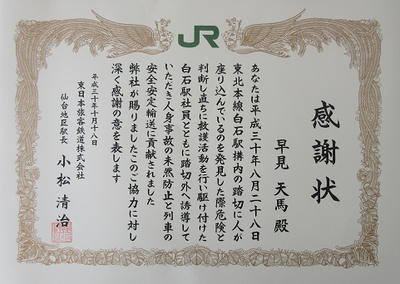 JR
感謝状
早見 天馬 殿
あなたは平成三十年八月二十八日
東北本線白石駅構内の踏切に人が
座り込んでいるのを発見した際危険と
判断し直ちに救護活動を行い駆け付けた
白石駅社員とともに踏切外へ誘導して
いただき人身事故の未然防止と列車の
安全安定輸送に貢献されました
弊社が賜りましたこのご協力に対し
深く感謝の意を表します
平成三十年十月十八日
東日本旅客鉄道株式会社
仙台地区駅長 小松 清治